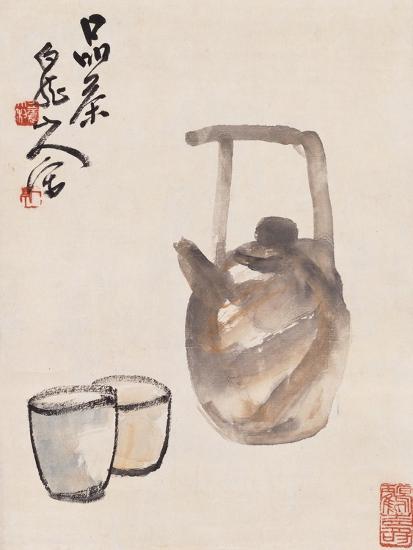 品茶
白龍山人寫